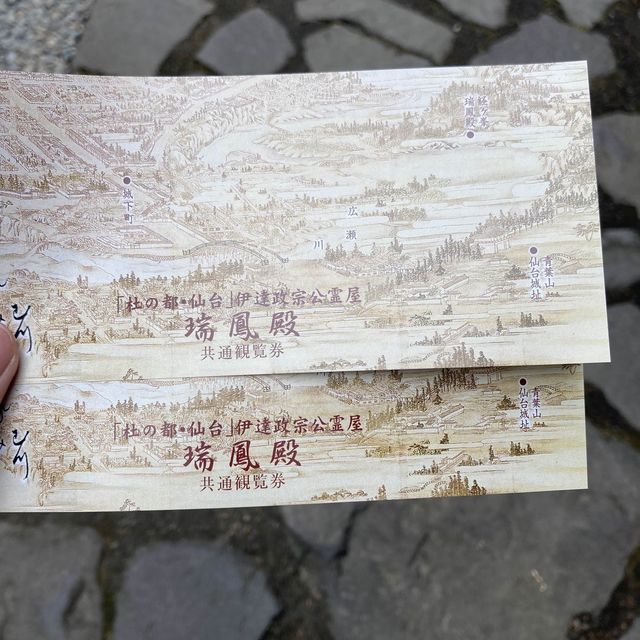 経ヶ峯
瑞鳳殿
城下町
広瀬川
青葉山
仙台城址
「杜の都・仙台」伊達政宗公霊屋
瑞鳳殿
共通観覧券
青葉山
仙台城址
「杜の都・仙台」伊達政宗公霊屋
瑞鳳殿
共通観覧券